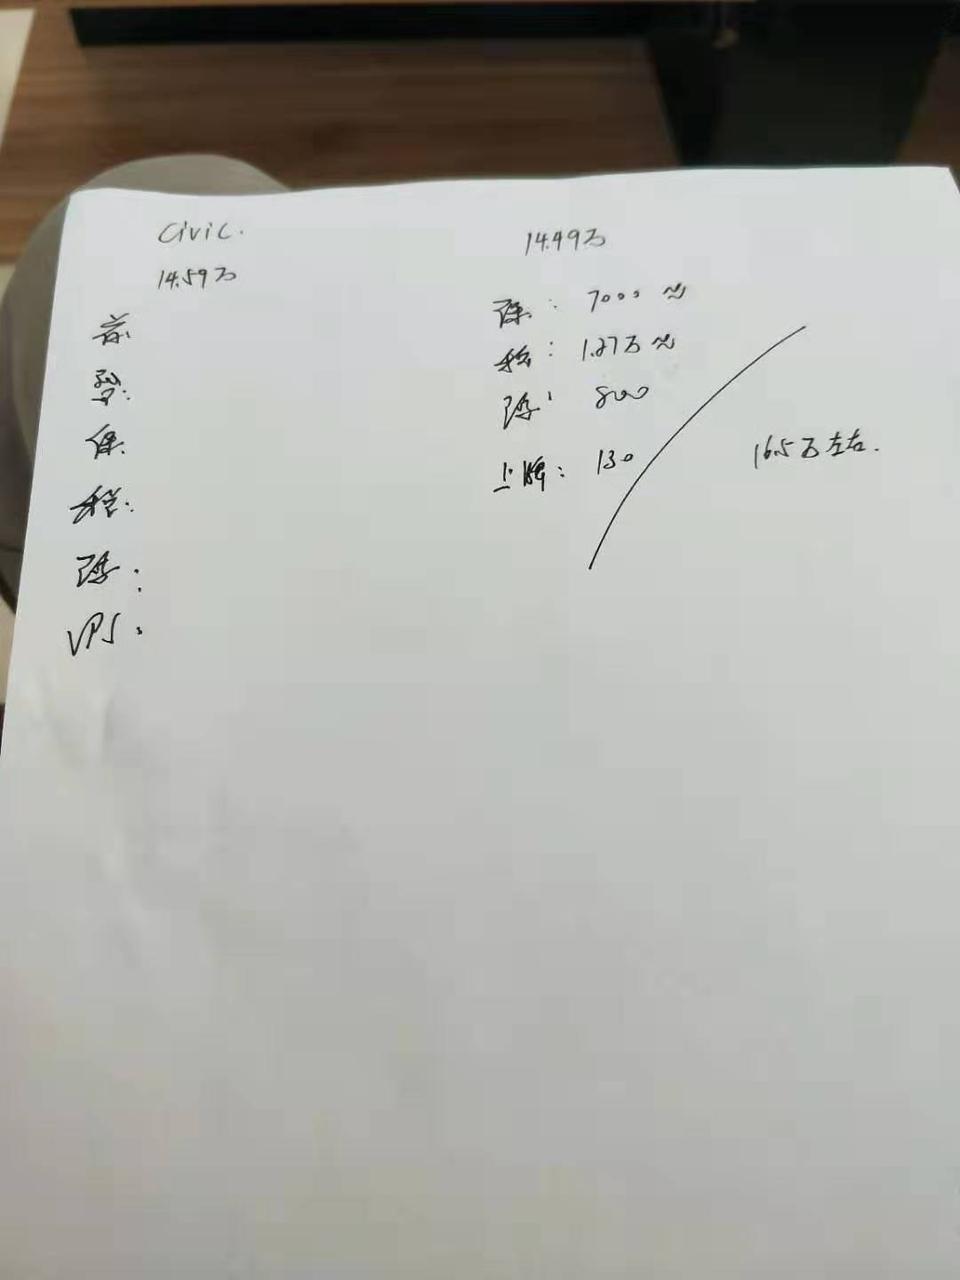 Civic.
14.59万
首:
保:
税:
VPS:
14.49万
保: 7000
税: 1.27万
800
上牌: 130
16.5万左右.